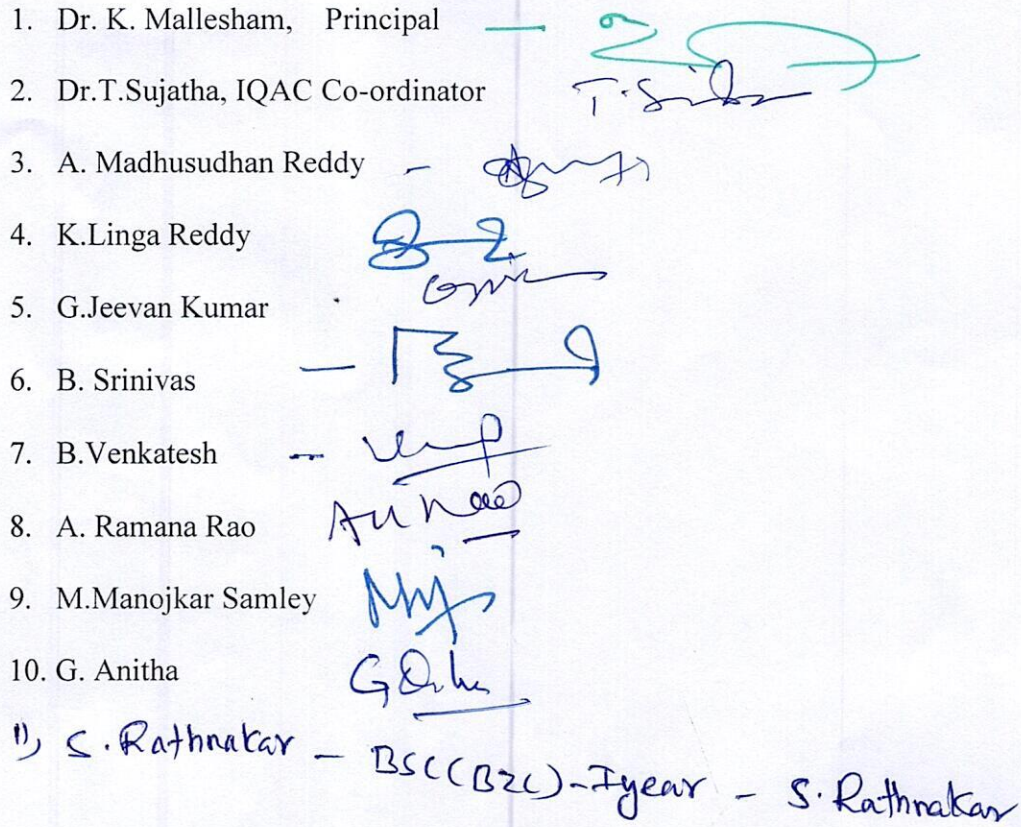 1. Dr. K. Mallesham, Principal —
2. Dr.T.Sujatha, IQAC Co-ordinator T.
3. A. Madhusudhan Reddy -
4. K.Linga Reddy
5. G.Jeevan Kumar
6. B. Srinivas —
7. B.Venkatesh --
8. A. Ramana Rao
9. M.Manojkar Samley
10. G. Anitha
11) S. Rathnakar - BSC(BZC)-Iyear - S. Rathnakar